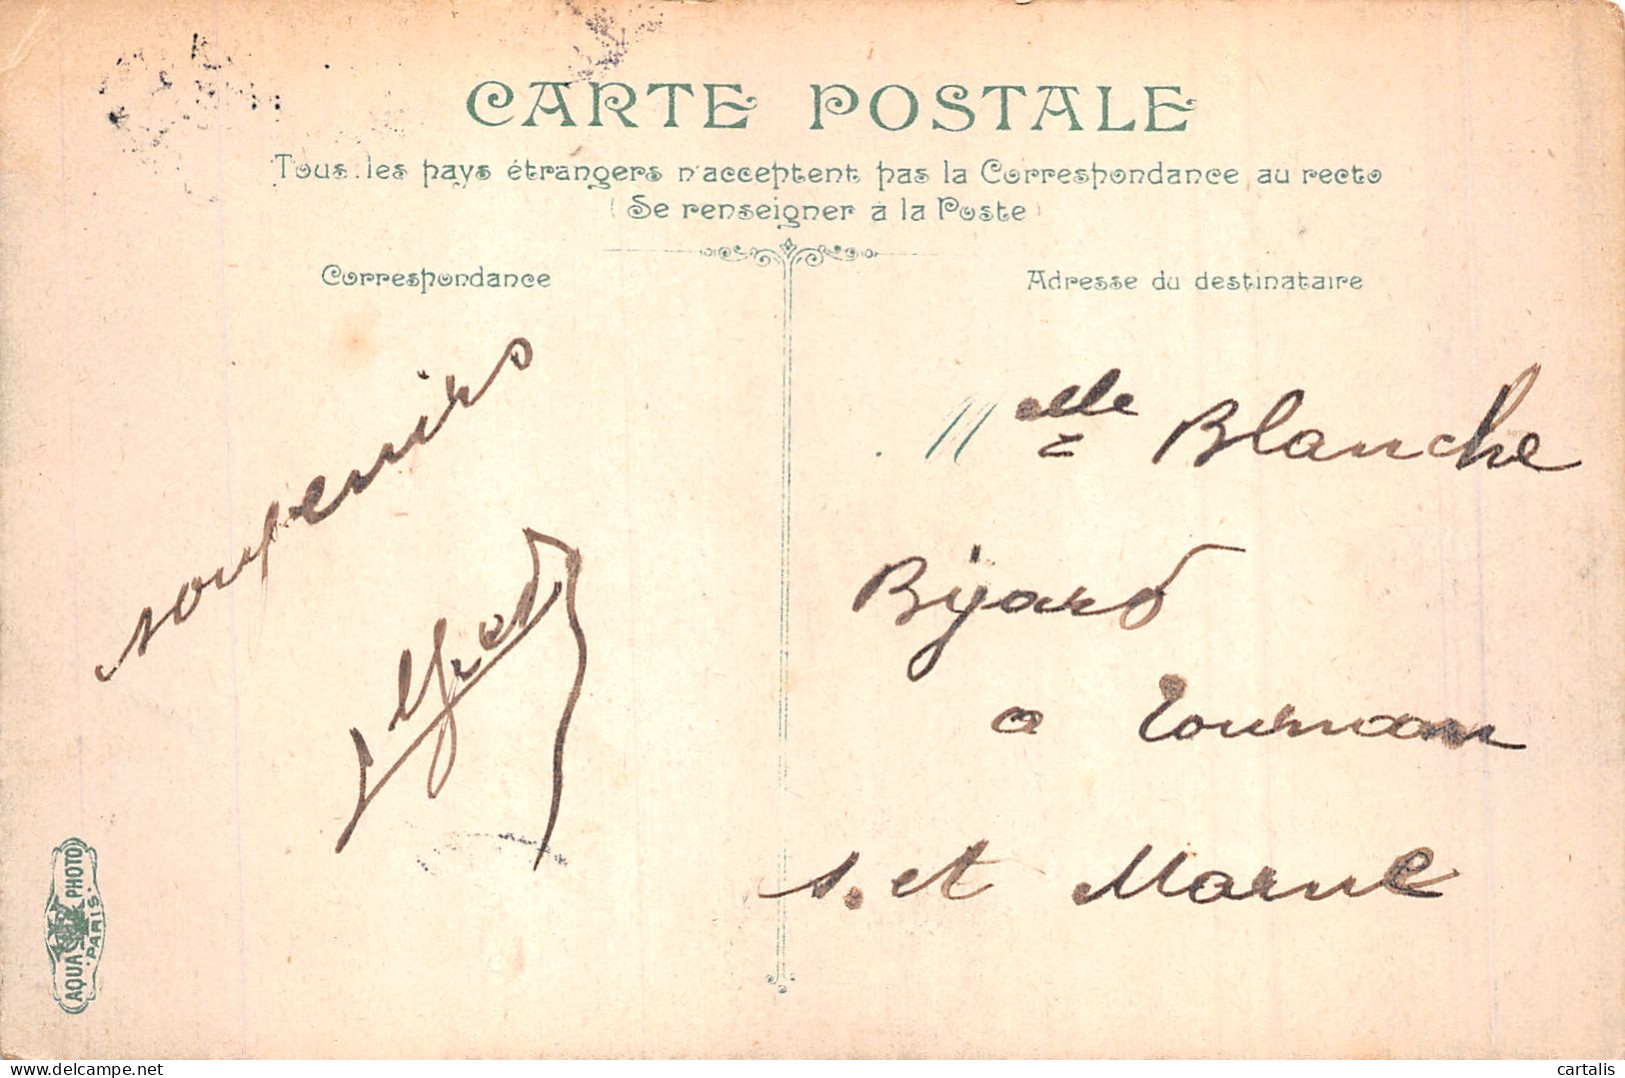 CARTE POSTALE
Tous les pays étrangers n'acceptent pas la Correspondance au recto
(Se renseigner à la Poste)
Correspondance
Adresse du destinataire
souvenirs
Alfred
Mlle Blanche
Bijard
a Tournan
s. et Marne
AQUA PHOTO
PARIS
cartalis